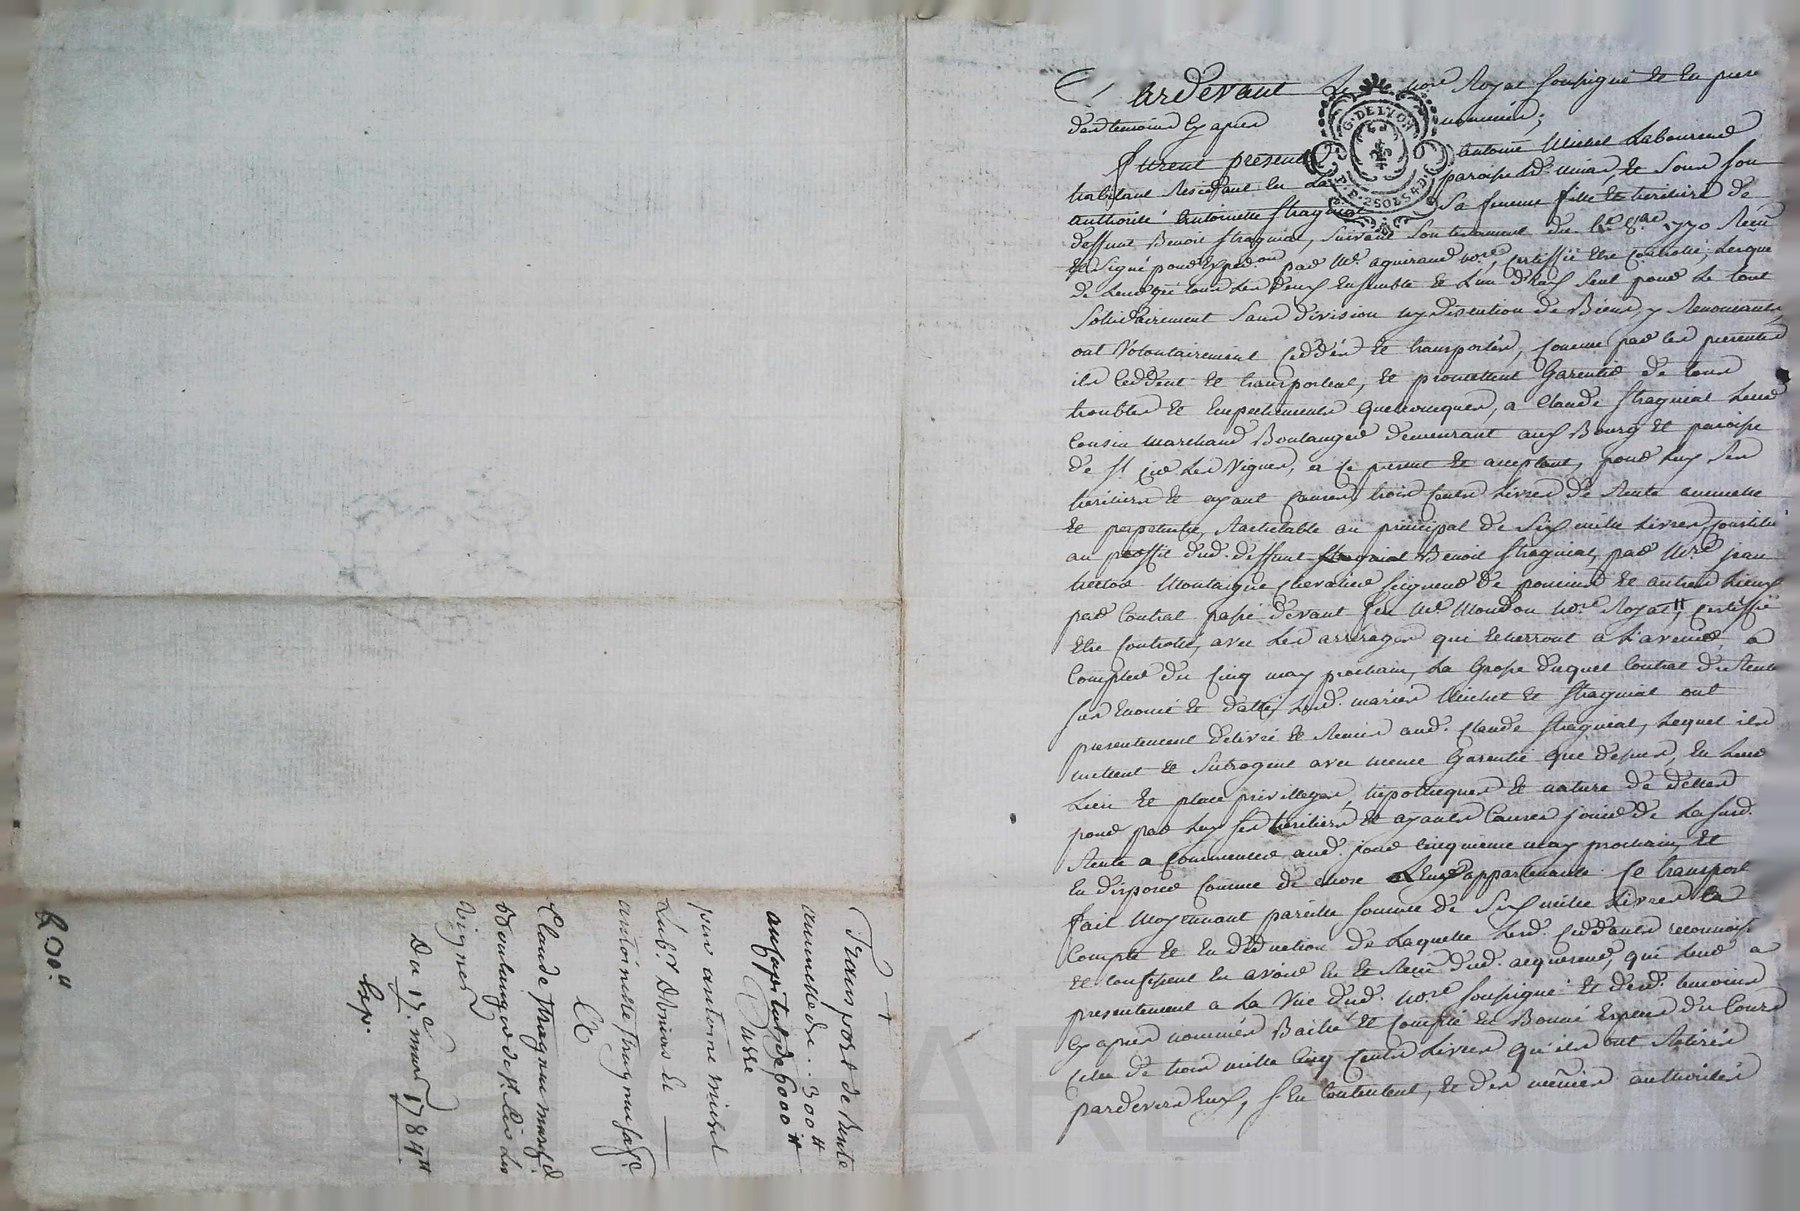 Pardevant Le nore Royal soussigné Et En presence
des temoins Cy apres nommés;
furent presents Antoine Michel Laboureur
habitant Residant En La paroisse d'Unias, Et Sous son
authorité Antoinette Stragniat Sa femme fille Et heritiere de
deffunt Benoit Stragniat, suivant Son testament du 8bre 1770 Reçu
Et signé pour Expedon par Me aguiraud nore, certiffié Etre Controllé, Lesquels
de Leur gré tous Les deux Ensemble Et L'un d'Eux seul pour Le tout
Sollidairement Sans division ny discution de Biens y Renonçants,
ont Volontairement Ceddés Et transportés, comme par les presentes
ils Ceddent Et transportent, Et promettent Garentir de tous
troubles Et Empechements quelconques, a Claude Stragniat Leur
Cousin Marchand Boulanger demeurant aux Bourg Et paroisse
de St Cire Les Vignes, a ce present Et acceptant, pour Luy Ses
heritiers Et ayant Causes, trois Cents Livres de Rente annuelle
Et perpetuelle, Rachetable au principal de Six mille Livres, Constituée
au proffit dud. deffunt Benoit Stragniat, par Mre Jean
hector Montaigne Chevalier Seigneur de poncins Et autres Lieux
par Contrat passé devant feu Me Moudon nore Royal, Certiffié
Etre Controllé, avec Les arrerages qui Echerront a L'avenir, a
Compter du Cinq may prochain, La Grosse duquel Contrat de Rente
sus Enoncé Et datté, Lesd. mariés Michel Et Stragniat ont
presentement délivré Et Remis aud. Claude Stragniat, Lequel ils
mettent Et Subrogent avec meme Garentie que dessus, En Leur
Lieu Et place privilleges, hipotheques Et nature de dettes
pour par Luy ses heritiers Et ayants Causes jouir de La susd.
Rente a Commencer aud. jour cinquieme may prochain, Et
En disposer Comme de chose Leurs appartenante. Ce transport
fait Moyennant pareille somme de Six mille Livres a
Compte Et En déduction de Laquelle Lesd. Ceddants reconnoiss.
Et confessent En avoir Eu Et Reçu dud. acquereur, qui Leur a
presentement a La Vüe dud. nore soussigné Et desd. temoins
Cy apres nommés Baillé Et Compté En Bonnes Especes du Cours
celle de trois mille Cinq Cents Livres qu'ils ont Retirés
pardevers Eux, s'En Contentent, Et des mêmes authorités
G. DE LYON
P.P. 2 SOLS 4 D.
Transport de Rente
annuelle de .. 300 ₶
au Capital de 6000 ₶
Passé
par antoine michel
Lab.r d'Unias Et
antoinette Stragniat sa fe
A
Claude Stragniat march.d
Boulanger de St Cire Les
Vignes
Du 15e mars 1784
Exp.
20 ₶